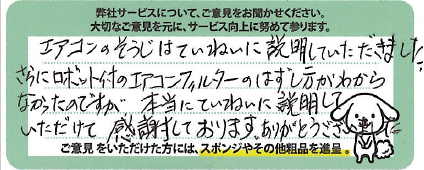 弊社サービスについて、ご意見をお聞かせください。
大切なご意見を元に、サービス向上に努めて参ります。
エアコンのそうじはていねいに説明していただきました。
さらにロボット付のエアコンフィルターのはずし方がわから
なかったのですが 本当にていねいに説明して
いただけて 感謝しております。ありがとうござ
ご意見をいただけた方には、スポンジやその他粗品を進呈。